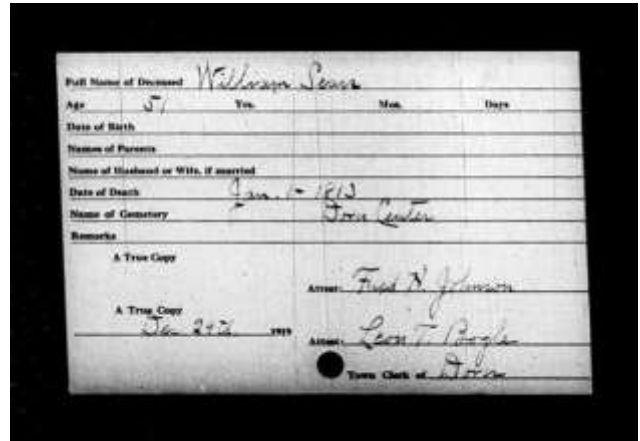 Full Name of Deceased William
Age 51 Yrs. Mos. Days
Date of Birth
Names of Parents
Name of Husband or Wife, if married
Date of Death Jan. 1- 1813
Name of Cemetery Town Center
Remarks
A True Copy
Attest: Fred H. Johnson
A True Copy
1919
Attest: Leon T.
Town Clerk of